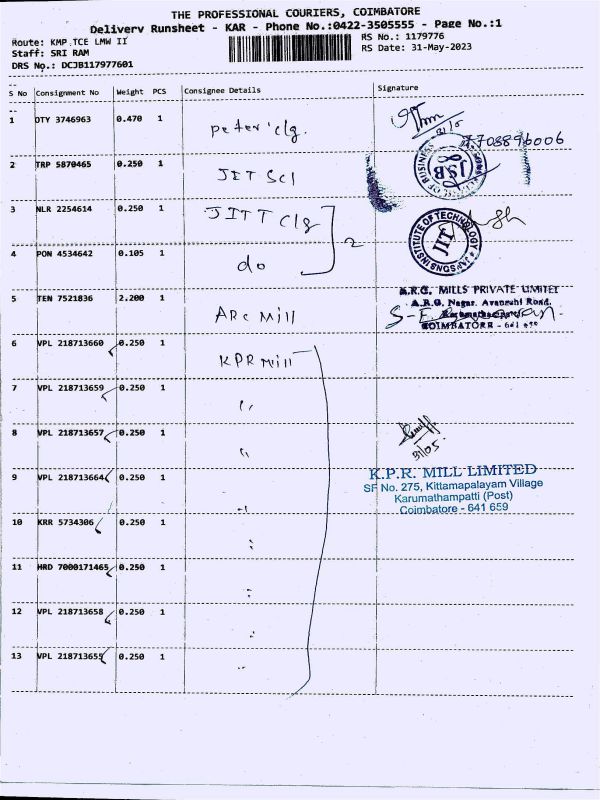 THE PROFESSIONAL COURIERS, COIMBATORE
Delivery Runsheet - KAR - Phone No:0422-3505555 - Page No.:1
Route: KMP TCE LMW II
RS No.: 1179776
Staff: SRI RAM
RS Date: 31-May-2023
DRS No.: DCJB117977601
S No Consignment No Weight PCS Consignee Details Signature
1 OTY 3746963 0.470 1 peter clg.
31/5
7703896006
2 TRP 5870465 0.250 1 JET Scl
JSB
3 NLR 2254614 0.250 1 JITT clg
2
JANSONS INSTITUTE OF TECHNOLOGY
JIT
4 PON 4534642 0.105 1 do
5 TEN 7521836 2.200 1 ARC Mill
A.R.G. MILLS PRIVATE LIMITED
A.R.G. Nagar, Avanashi Road,
COIMBATORE - 641 659
6 VPL 218713660 0.250 1 KPR Mill
7 VPL 218713659 0.250 1 "
8 VPL 218713657 0.250 1 "
31/05
9 VPL 218713664 0.250 1 "
K.P.R. MILL LIMITED
SF No. 275, Kittamapalayam Village
Karumathampatti (Post)
Coimbatore - 641 659
10 KRR 5734306 0.250 1 "
11 HRD 7000171465 0.250 1 "
12 VPL 218713658 0.250 1 "
13 VPL 218713655 0.250 1 "